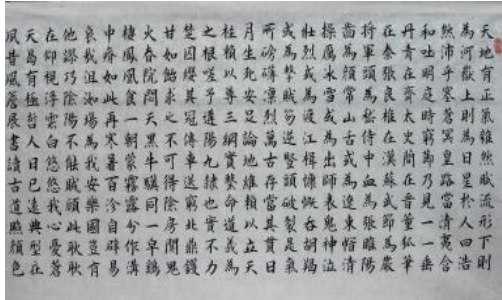 天地有正氣雜然賦流形下則
為河嶽上則為日星於人曰浩
然沛乎塞蒼冥皇路當清夷含
和吐明庭時窮節乃見一一垂
丹青在齊太史簡在晉董狐筆
在秦張良椎在漢蘇武節為嚴
將軍頭為嵇侍中血為張睢陽
齒為顏常山舌或為遼東帽清
操厲冰雪或為出師表鬼神泣
壯烈或為渡江楫慷慨吞胡羯
或為擊賊笏逆豎頭破裂是氣
所磅礴凜烈萬古存當其貫日
月生死安足論地維賴以立天
柱賴以尊三綱實繫命道義為
之根嗟予遘陽九隸也實不力
楚囚纓其冠傳車送窮北鼎鑊
甘如飴求之不可得陰房闐鬼
火春院閟天黑牛驥同一皁雞
棲鳳凰食一朝蒙霧露分作溝
中瘠如此再寒暑百沴自辟易
哀哉沮洳場為我安樂國豈有
他繆巧陰陽不能賊顧此耿耿
在仰視浮雲白悠悠我心憂蒼
天曷有極哲人日已遠典型在
夙昔風簷展書讀古道照顏色